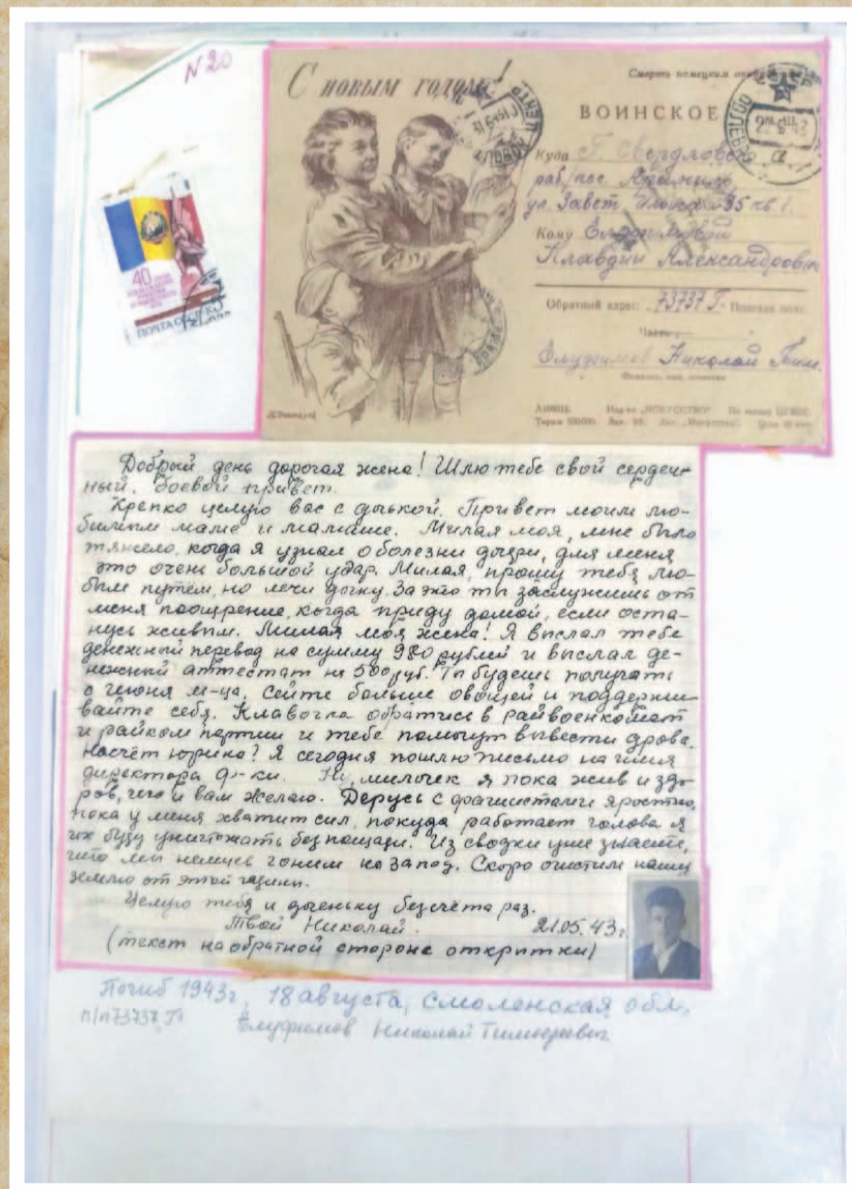 N 20
С НОВЫМ ГОДОМ!
Смерть немецким
ВОИНСКОЕ
40
ПОЧТА СССР
Куда Г. Свердловск
раб/пос Арамиль
ул. Завет Ильича 35 кв 1.
Кому
Клавдии Александровне
Обратный адрес: 73737 Г. Полевая почт.
Часть
Николай Тим.
Фамилия, имя, отчество
Тираж 500.000. Изд-во „ИСКУССТВО"
Добрый день дорогая жена! Шлю тебе свой сердеч-
ный, боевой привет.
Крепко целую вас с дочкой. Привет моим лю-
бимым маме и мамаше. Милая моя, мне было
тяжело, когда я узнал о болезни дочери, для меня
это очень большой удар. Милая, прошу тебя лю-
бым путём, но лечи дочку. За это ты заслужишь от
меня поощрение, когда приду домой, если оста-
нусь живым. Милая моя жена! Я выслал тебе
денежный перевод на сумму 980 рублей и выслал де-
нежный аттестат на 500 руб. Ты будешь получать
с июня м-ца. Сейте больше овощей и поддержи-
вайте себя. Клавочка обратись в райвоенкомат
и райком партии и тебе помогут вывести дрова.
Насчёт Юрина? Я сегодня пошлю письмо на имя
директора ф-ки. Ну, милочек я пока жив и здо-
ров, чего и вам желаю. Дерусь с фашистами яростно,
пока у меня хватит сил, покуда работает голова я
их буду уничтожать без пощады. Из сводки уже знаете,
что мы немцев гоним на запад. Скоро очистим нашу
землю от этой гадины.
Целую тебя и доченьку без счёта раз.
Твой Николай. 21.05.43г
(текст на обратной стороне открытки)
Погиб 1943г, 18 августа, Смоленская обл.
п/п 73737 Г
Николай Тимофеевич